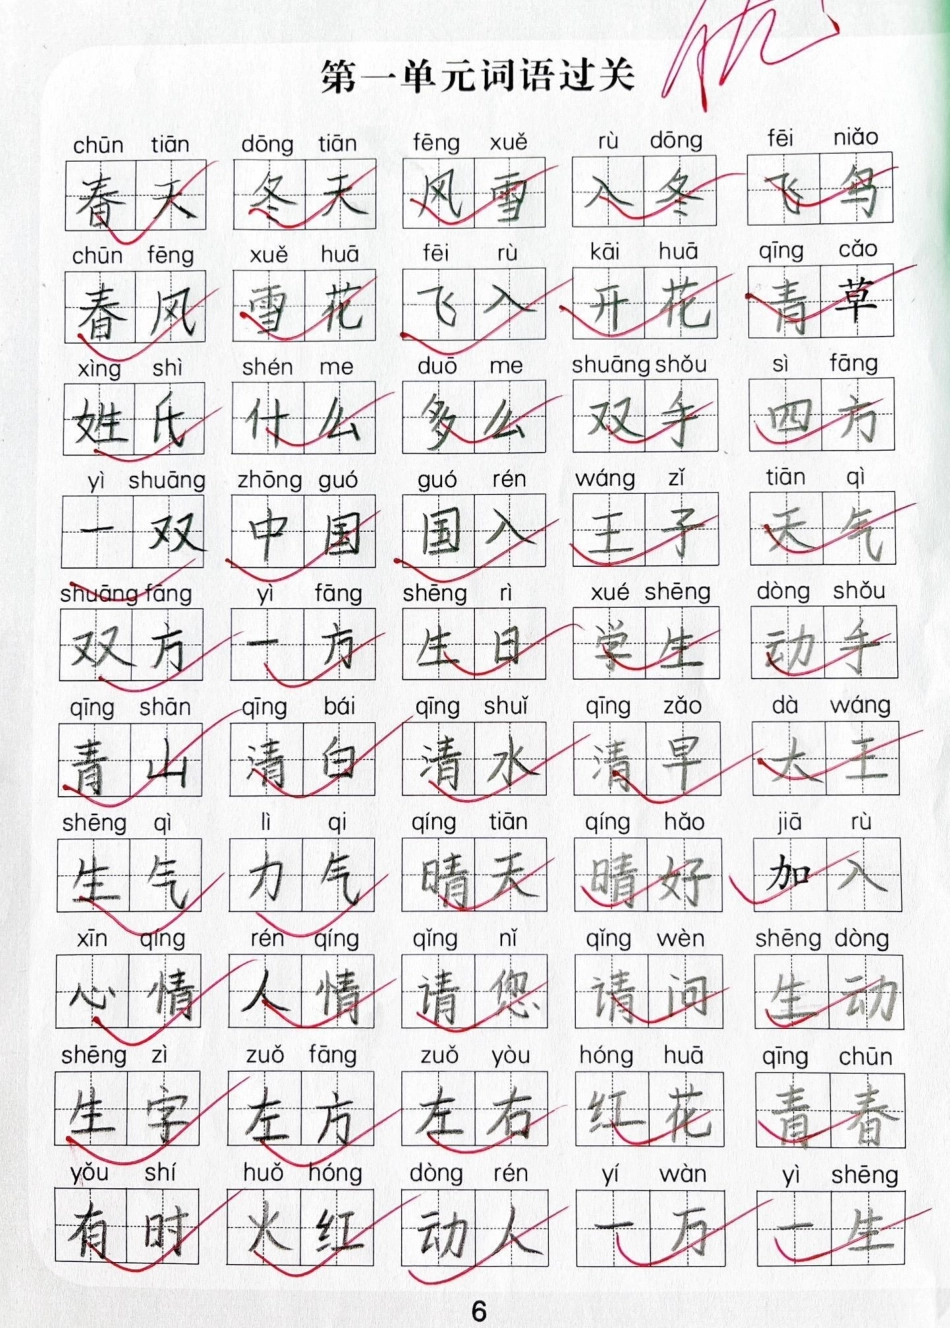 优
第一单元词语过关
chūn tiān dōng tiān fēng xuě rù dōng fēi niǎo
春天 冬天 风雪 入冬 飞鸟
chūn fēng xuě huā fēi rù kāi huā qīng cǎo
春风 雪花 飞入 开花 青草
xìng shì shén me duō me shuāng shǒu sì fāng
姓氏 什么 多么 双手 四方
yì shuāng zhōng guó guó rén wáng zǐ tiān qì
一双 中国 国入 王子 天气
shuāng fāng yì fāng shēng rì xué shēng dòng shǒu
双方 一方 生日 学生 动手
qīng shān qīng bái qīng shuǐ qīng zǎo dà wáng
青山 清白 清水 清早 大王
shēng qì lì qi qíng tiān qíng hǎo jiā rù
生气 力气 晴天 晴好 加入
xīn qíng rén qíng qǐng nǐ qǐng wèn shēng dòng
心情 人情 请您 请问 生动
shēng zì zuǒ fāng zuǒ yòu hóng huā qīng chūn
生字 左方 左右 红花 青春
yǒu shí huǒ hóng dòng rén yí wàn yì shēng
有时 火红 动人 一万 一生
6